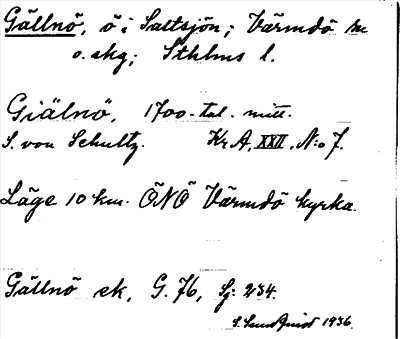 Gällnö, ö i Saltsjön; Värmdö sn
o. skg; Sthlms l.
Giälnö, 1700-tal. mitt.
S. von Schultz. Kr A, XXII, N:o 7.
Läge 10 km. ÖNÖ Värmdö kyrka.
Gällnö ek, G. 76, Sj: 234.
S. Sundquist 1936.